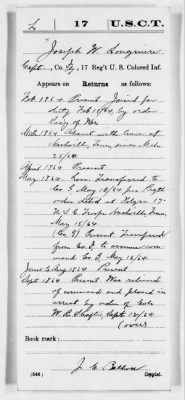 L | 17 | U.S.C.T.
Joseph W. Longmire
Capt., Co. , 17 Reg't U. S. Colored Inf.
Appears on Returns as follows:
Feb. 1864 Present Joined for
duty Feb 19/64 by order
Secy of War
Mch. 1864 Absent with leave at
Nashville, Tenn. since Mch
25/64
April 1864 Present
May 1864 Transferred to
Co. May 10/64 per Regtl
order dated at Hdqrs 17
U. S. C. Troops Nashville, Tenn.
May 10/64
Present Transferred
from Co. to assume com-
mand Co. May 10/64
June & Aug 1864 Present
Sept. 1864 Present. Was relieved
of command and placed in
arrest by order of Col.
W. R. Shafter, Sept. 12/64
(over)
Book mark:
(546) Copyist.